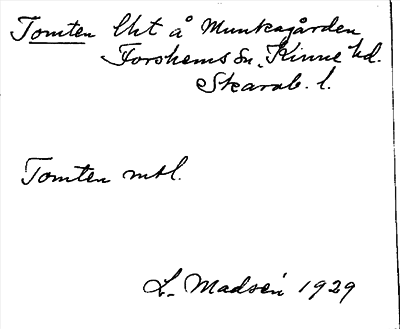 Tomten lht å Munkagården
Forshems Sn. Kinne hd.
Skarab. l.
Tomten mtl.
L. Madsén 1929